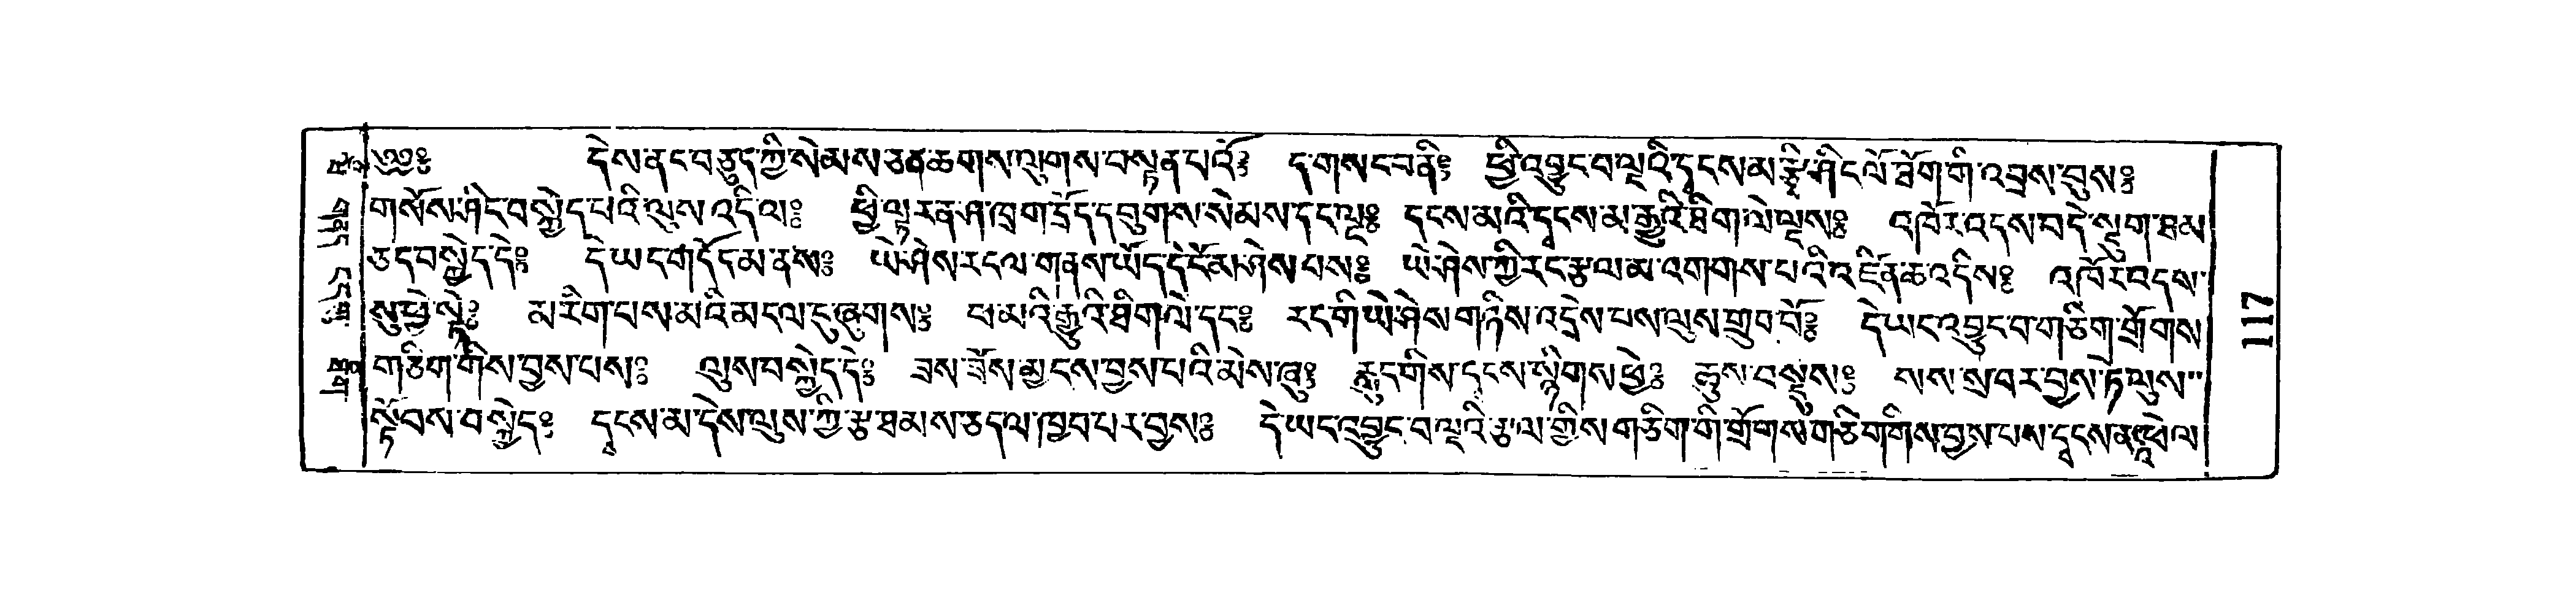 ༄༅༔ དེས་ནང་བཅུད་ཀྱི་སེམས་ཅན་ཆགས་ལུགས་བསྟན་པའོ༔ ད་གསང་བནི༔ ཕྱི་འབྱུང་བ་ལྔའི་དྭངས་མ་རྩི་ཤིང་ལོ་ཐོག་གི་འབྲས་བུས༔
གསོས་ཤིང་བསྐྱེད་པའི་ལུས་འདི་ལ༔ ཕྱི་ལྟར་ན་ཤ་ཁྲག་དྲོད་དབུགས་སེམས་དང་ལྔ༔ དངས་མའི་དྭངས་མ་རྒྱུའི་ཐིག་ལེ་ལྔས༔ འཁོར་འདས་བདེ་སྡུག་ཐམ
ཅད་བསྐྱེད་དེ༔ དེ་ཡང་གདོད་མ་ནས༔ ཡེ་ཤེས་རངལ་གནས་ཡོད་དེ་ངོམ་ཤེས་པས༔ ཡེ་ཤེས་ཀྱི་རང་རྩལ་མ་འགགས་པའི་འཛིན་ཆ་འདིས༔ འཁོར་འདས་
སུ་ཕྱེ་སྟེ༔ མརིག་པས་མའི་མངལ་དུ་ཞུགས༔ ཕ་མའི་རྒྱུའི་ཐིགལེ་དང༔ རང་གི་ཡེ་ཤེས་གཉིས་འདྲེས་པས་ལུས་གྲུབ་བོ༔ དེ་ཡང་འབྱུང་བ་གཅིག་གྲོགས
གཅིག་གིས་བྱས་པས༔ ལུས་བསྐྱེད་དེ༔ ཟས་ཟོས་མྱངས་བྱས་པའི་མེས་ཞུ༔ རླུང་གིས་དྭངས་སྙིགས་ཕྱེ༔ ཆུས་བསྡུས༔ སས་སྲབར་བྱས་ཏ་ལུས་
སྟོབས་བསྐྱེད༔ དྭངས་མ་དེས་ལུས་ཀྱི་རྩ་ཐམས་ཅདལ་ཁྱབ་པར་བྱས༔ དེ་ཡང་འབྱུང་བ་ལྔའི་རྩལ་གྱིས་གཅིག་གི་གྲོགས་གཅིགགིས་བྱས་པས་དྭངས་ན་འཕེལ